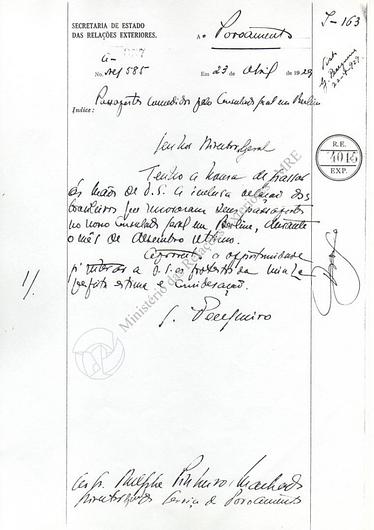 SECRETARIA DE ESTADO
DAS RELAÇÕES EXTERIORES.
A o Povoamento
J-163
No. 585
Em 23 de Abril de 1929
Passaportes concedidos pelo Consulado Geral em Berlim
Indice:
Senhor Director Geral
R.E.
4015
EXP.
Tenho a honra de passar
ás mãos de V.S. a inclusa relação dos
brasileiros que renovaram seus passaportes
no nosso Consulado Geral em Berlim, durante
o mês de dezembro ultimo.
Aproveito a opportunidade
p/ reiterar a V.S. os protestos da minha
perfeita estima e consideração.
Ministério das Relações Exteriores - MRE
Pinheiro Machado
Director Serviço de Povoamento